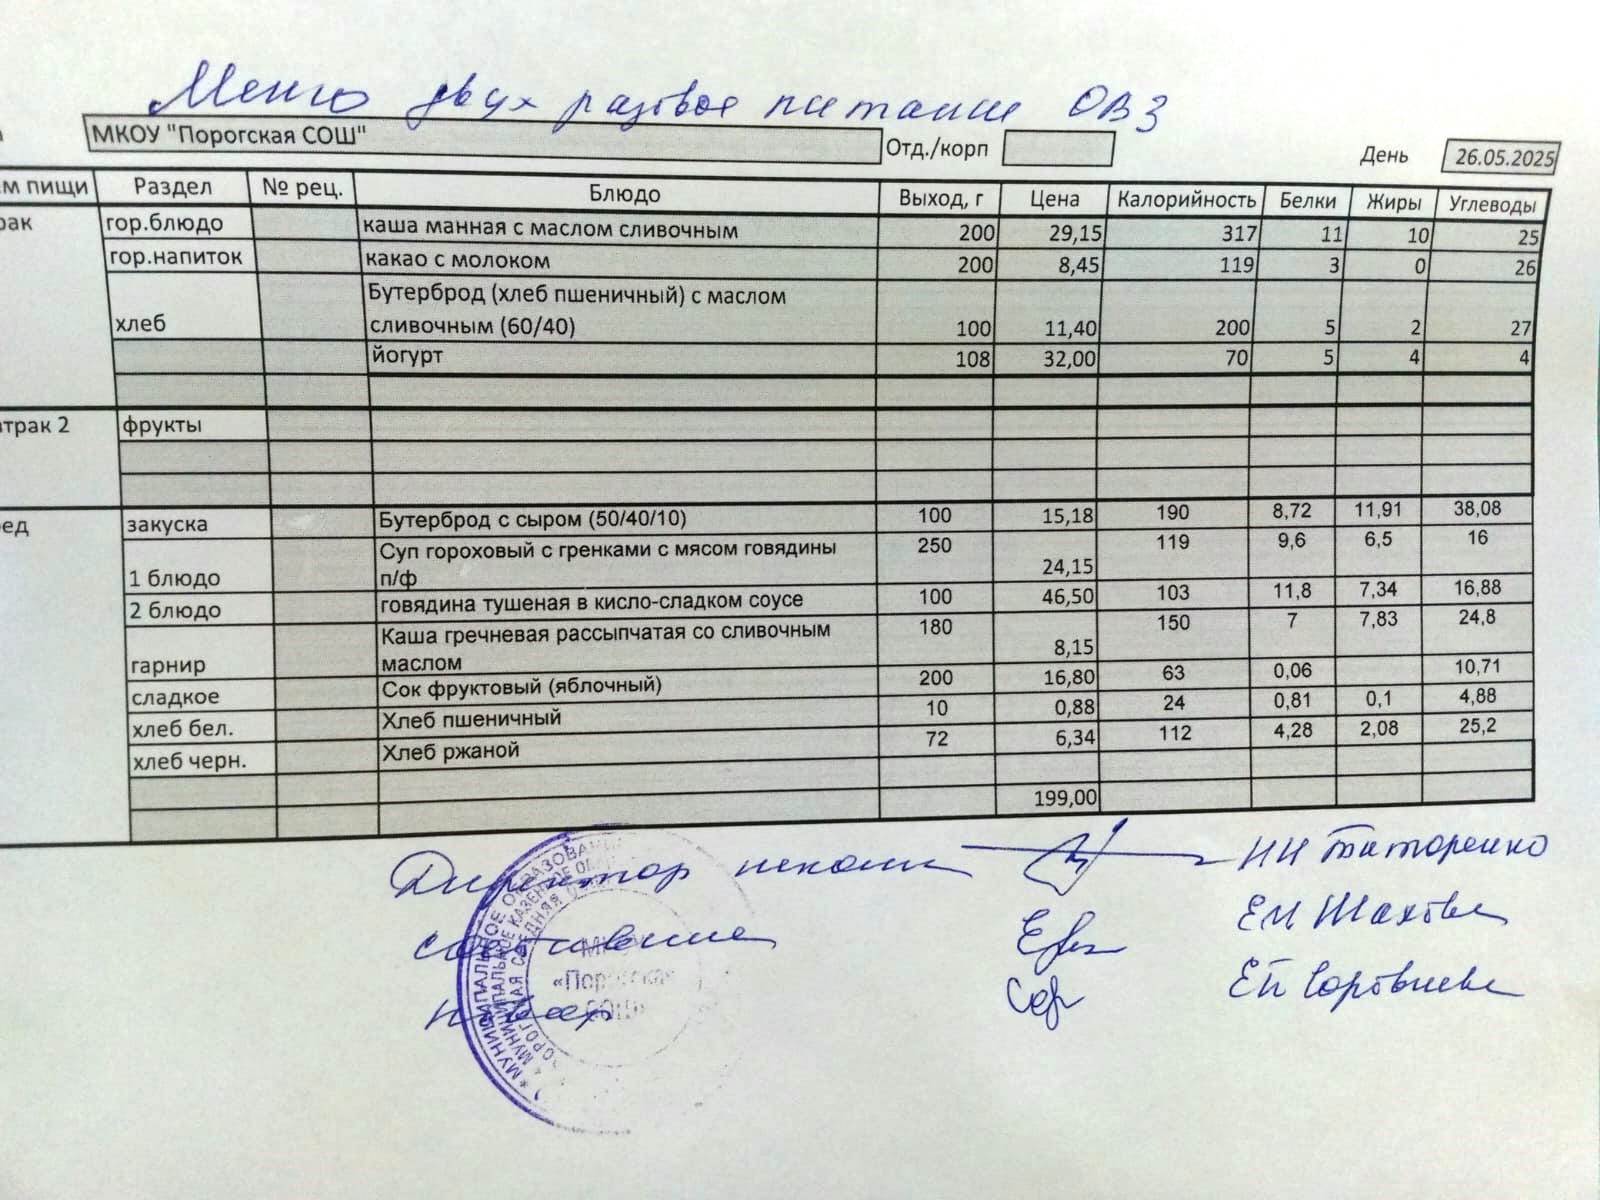 Меню двух разовое питание ОВЗ
МКОУ "Порогская СОШ" Отд./корп День 26.05.2025
м пищи Раздел № рец. Блюдо Выход, г Цена Калорийность Белки Жиры Углеводы
рак гор.блюдо каша манная с маслом сливочным 200 29,15 317 11 10 25
гор.напиток какао с молоком 200 8,45 119 3 0 26
хлеб Бутерброд (хлеб пшеничный) с маслом
сливочным (60/40) 100 11,40 200 5 2 27
йогурт 108 32,00 70 5 4 4
втрак 2 фрукты
ед закуска Бутерброд с сыром (50/40/10) 100 15,18 190 8,72 11,91 38,08
1 блюдо Суп гороховый с гренками с мясом говядины
п/ф 250 24,15 119 9,6 6,5 16
2 блюдо говядина тушеная в кисло-сладком соусе 100 46,50 103 11,8 7,34 16,88
гарнир Каша гречневая рассыпчатая со сливочным
маслом 180 8,15 150 7 7,83 24,8
сладкое Сок фруктовый (яблочный) 200 16,80 63 0,06 10,71
хлеб бел. Хлеб пшеничный 10 0,88 24 0,81 0,1 4,88
хлеб черн. Хлеб ржаной 72 6,34 112 4,28 2,08 25,2
199,00
Директор школы НН Титоренко
ЕИ Шахова
повар
«Порогская
СОШ»